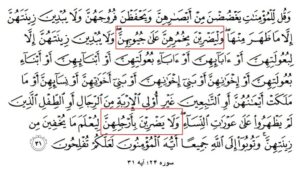 وَقُل لِّلْمُؤْمِنَٰتِ يَغْضُضْنَ مِنْ أَبْصَٰرِهِنَّ وَيَحْفَظْنَ فُرُوجَهُنَّ وَلَا يُبْدِينَ زِينَتَهُنَّ
إِلَّا مَا ظَهَرَ مِنْهَا وَلْيَضْرِبْنَ بِخُمُرِهِنَّ عَلَىٰ جُيُوبِهِنَّ وَلَا يُبْدِينَ زِينَتَهُنَّ إِلَّا
لِبُعُولَتِهِنَّ أَوْ ءَابَآئِهِنَّ أَوْ ءَابَآءِ بُعُولَتِهِنَّ أَوْ أَبْنَآئِهِنَّ أَوْ أَبْنَآءِ
بُعُولَتِهِنَّ أَوْ إِخْوَٰنِهِنَّ أَوْ بَنِىٓ إِخْوَٰنِهِنَّ أَوْ بَنِىٓ أَخَوَٰتِهِنَّ أَوْ نِسَآئِهِنَّ أَوْ مَا
مَلَكَتْ أَيْمَٰنُهُنَّ أَوِ ٱلتَّٰبِعِينَ غَيْرِ أُو۟لِى ٱلْإِرْبَةِ مِنَ ٱلرِّجَالِ أَوِ ٱلطِّفْلِ ٱلَّذِينَ
لَمْ يَظْهَرُوا۟ عَلَىٰ عَوْرَٰتِ ٱلنِّسَآءِ وَلَا يَضْرِبْنَ بِأَرْجُلِهِنَّ لِيُعْلَمَ مَا يُخْفِينَ مِن
زِينَتِهِنَّ وَتُوبُوٓا۟ إِلَى ٱللَّهِ جَمِيعًا أَيُّهَ ٱلْمُؤْمِنُونَ لَعَلَّكُمْ تُفْلِحُونَ ٣١
سوره ۲۴: آیه ۳۱